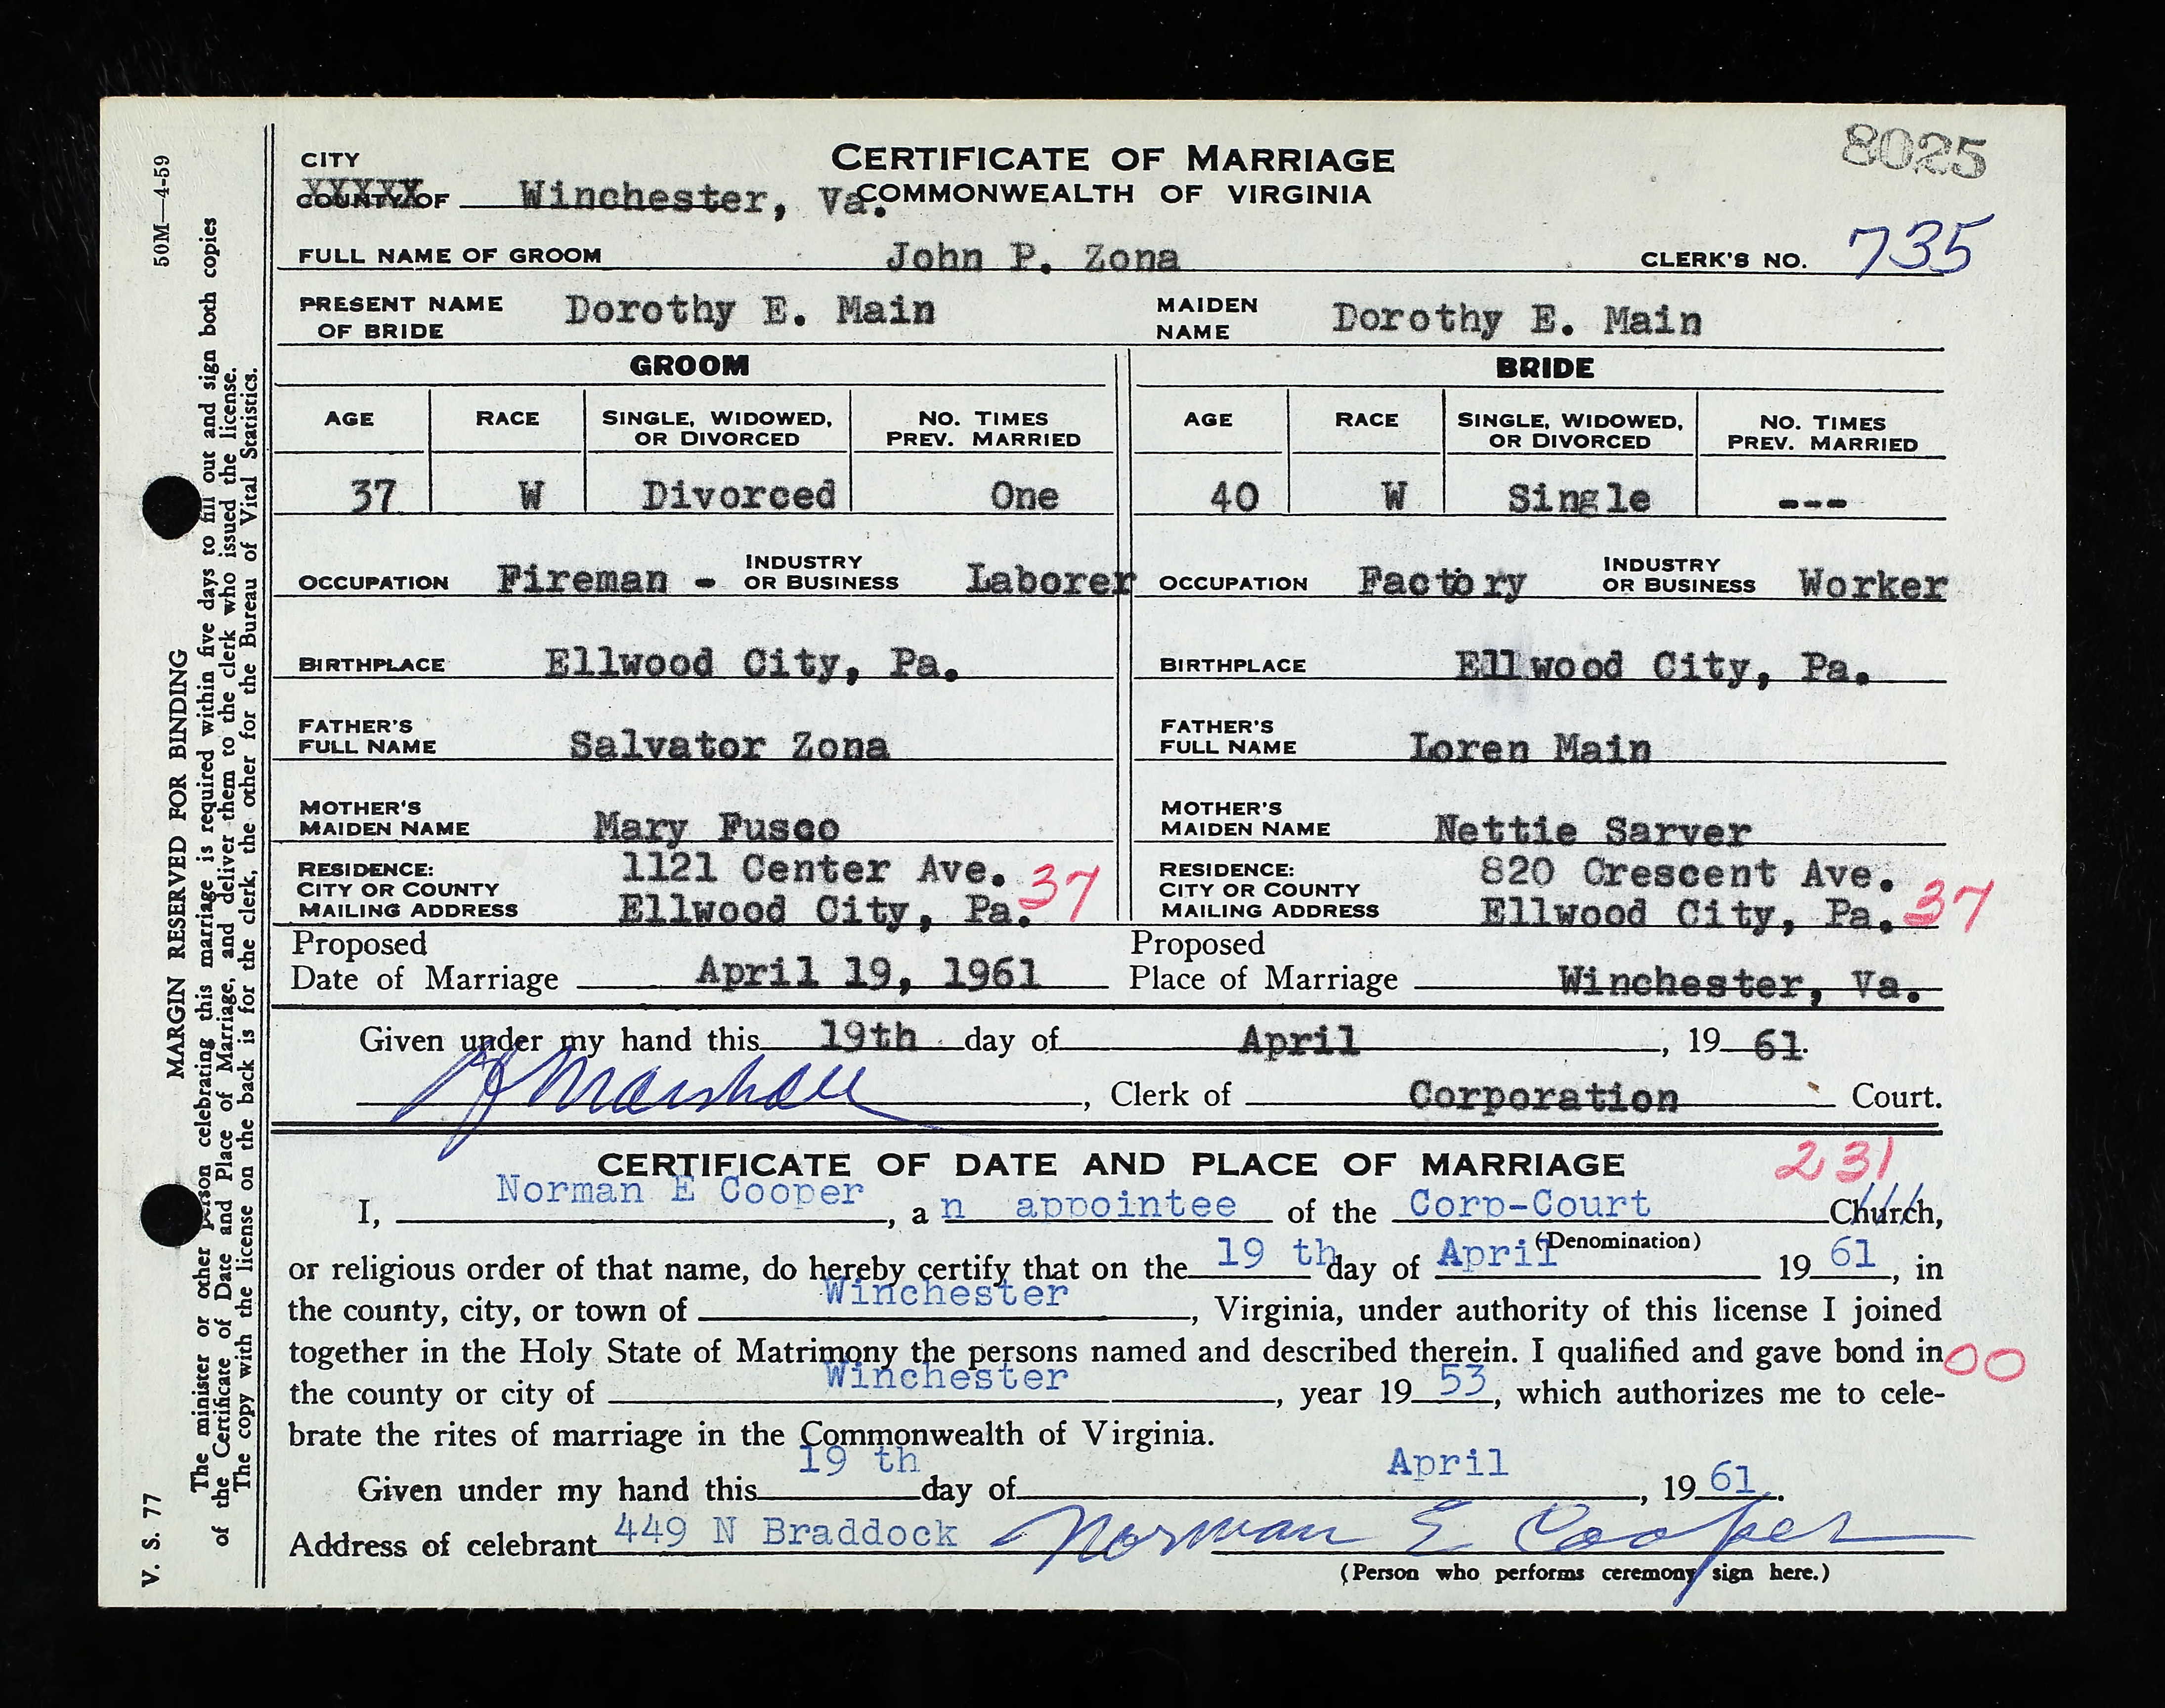 8025
CERTIFICATE OF MARRIAGE
CITY
COUNTY OF Winchester, Va. COMMONWEALTH OF VIRGINIA
FULL NAME OF GROOM John P. Zona CLERK'S NO. 735
PRESENT NAME OF BRIDE Dorothy E. Main MAIDEN NAME Dorothy E. Main
GROOM BRIDE
AGE RACE SINGLE, WIDOWED, OR DIVORCED NO. TIMES PREV. MARRIED AGE RACE SINGLE, WIDOWED, OR DIVORCED NO. TIMES PREV. MARRIED
37 W Divorced One 40 W Single ---
OCCUPATION Fireman - INDUSTRY OR BUSINESS Laborer OCCUPATION Factory INDUSTRY OR BUSINESS Worker
BIRTHPLACE Ellwood City, Pa. BIRTHPLACE Ellwood City, Pa.
FATHER'S FULL NAME Salvator Zona FATHER'S FULL NAME Loren Main
MOTHER'S MAIDEN NAME Mary Fusco MOTHER'S MAIDEN NAME Nettie Sarver
RESIDENCE: 1121 Center Ave. RESIDENCE: 820 Crescent Ave.
CITY OR COUNTY 37 CITY OR COUNTY 37
MAILING ADDRESS Ellwood City, Pa. MAILING ADDRESS Ellwood City, Pa.
Proposed Date of Marriage April 19, 1961 Proposed Place of Marriage Winchester, Va.
Given under my hand this 19th day of April, 19 61.
Marshall, Clerk of Corporation Court.
CERTIFICATE OF DATE AND PLACE OF MARRIAGE 231
I, Norman E Cooper, a n appointee of the Corp-Court Church,
(Denomination)
or religious order of that name, do hereby certify that on the 19 th day of April 19 61, in
the county, city, or town of Winchester, Virginia, under authority of this license I joined
together in the Holy State of Matrimony the persons named and described therein. I qualified and gave bond in 00
the county or city of Winchester, year 19 53, which authorizes me to cele-
brate the rites of marriage in the Commonwealth of Virginia.
Given under my hand this 19 th day of April, 19 61.
Address of celebrant 449 N Braddock Norman E Cooper
(Person who performs ceremony sign here.)
V. S. 77 MARGIN RESERVED FOR BINDING 50M—4-59
The minister or other person celebrating this marriage is required within five days to fill out and sign both copies
of the Certificate of Date and Place of Marriage, and deliver them to the clerk who issued the license.
The copy with the license on the back is for the clerk, the other for the Bureau of Vital Statistics.